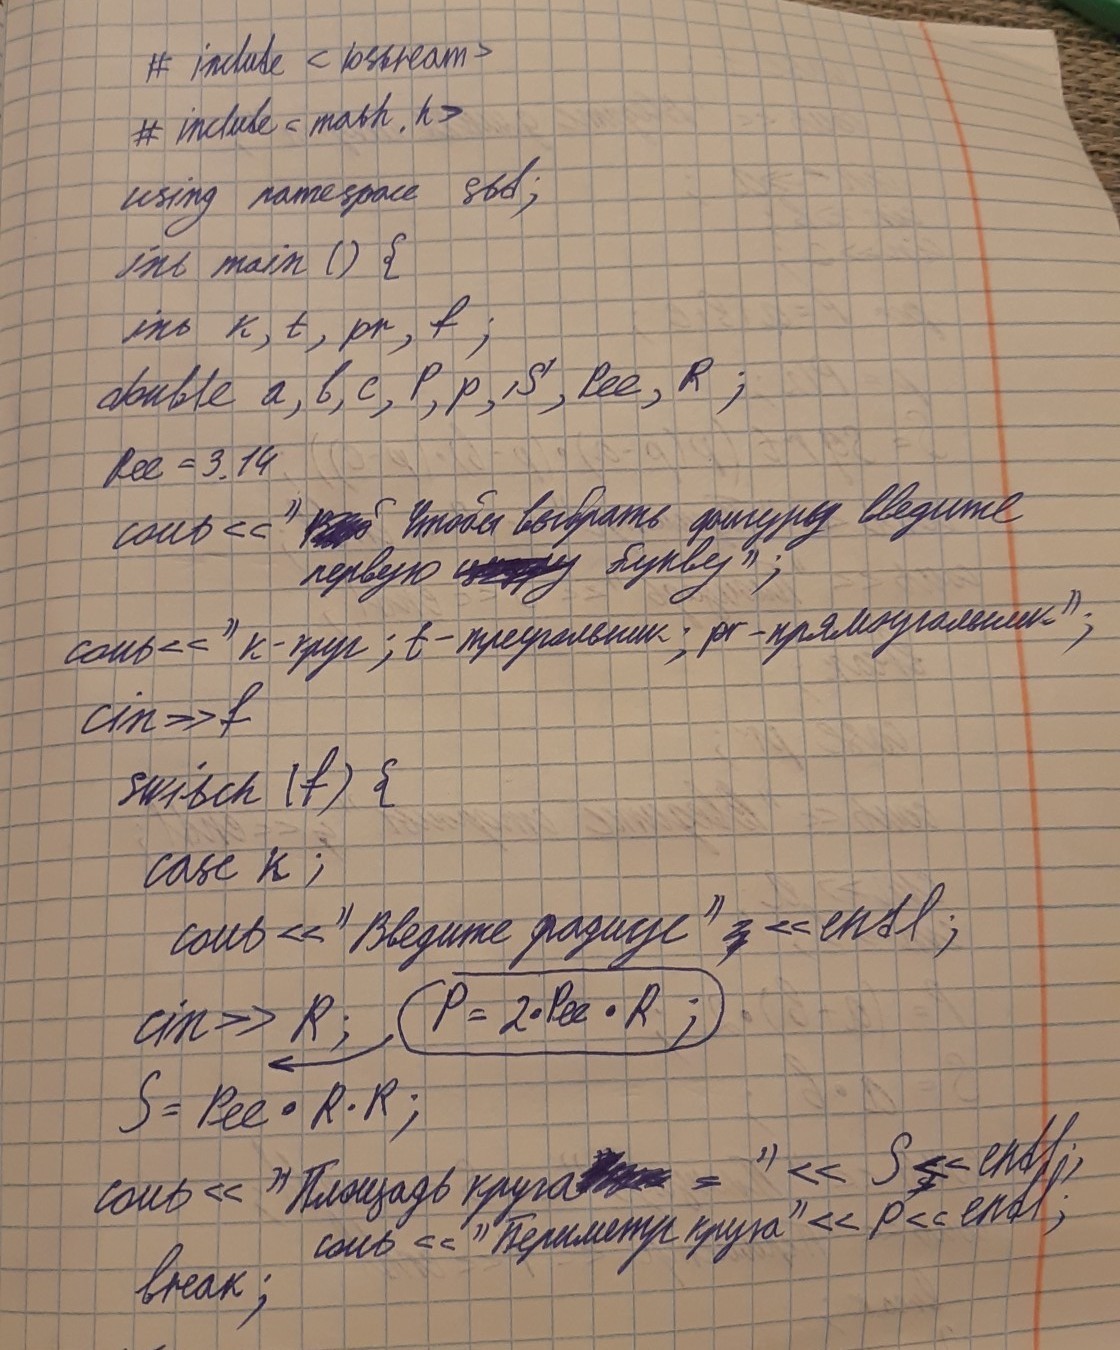 # include <iostream>
# include <math.h>
using namespace std;
int main () {
int k, t, pr, f ;
double a, b, c, P, p, S, Pee, R ;
Pee = 3.14
cout << " Чтобы выбрать фигуру введите
первую букву" ;
cout << " к-круг ; t-треугольник ; pr-прямоугольник" ;
cin >> f
switch (f) {
case k ;
cout << "Введите радиус" << endl ;
cin >> R ; P = 2 • Pee • R ;
S = Pee • R • R ;
cout << "Площадь круга = " << S << endl ;
cout << "Периметр круга" << P << endl ;
break ;